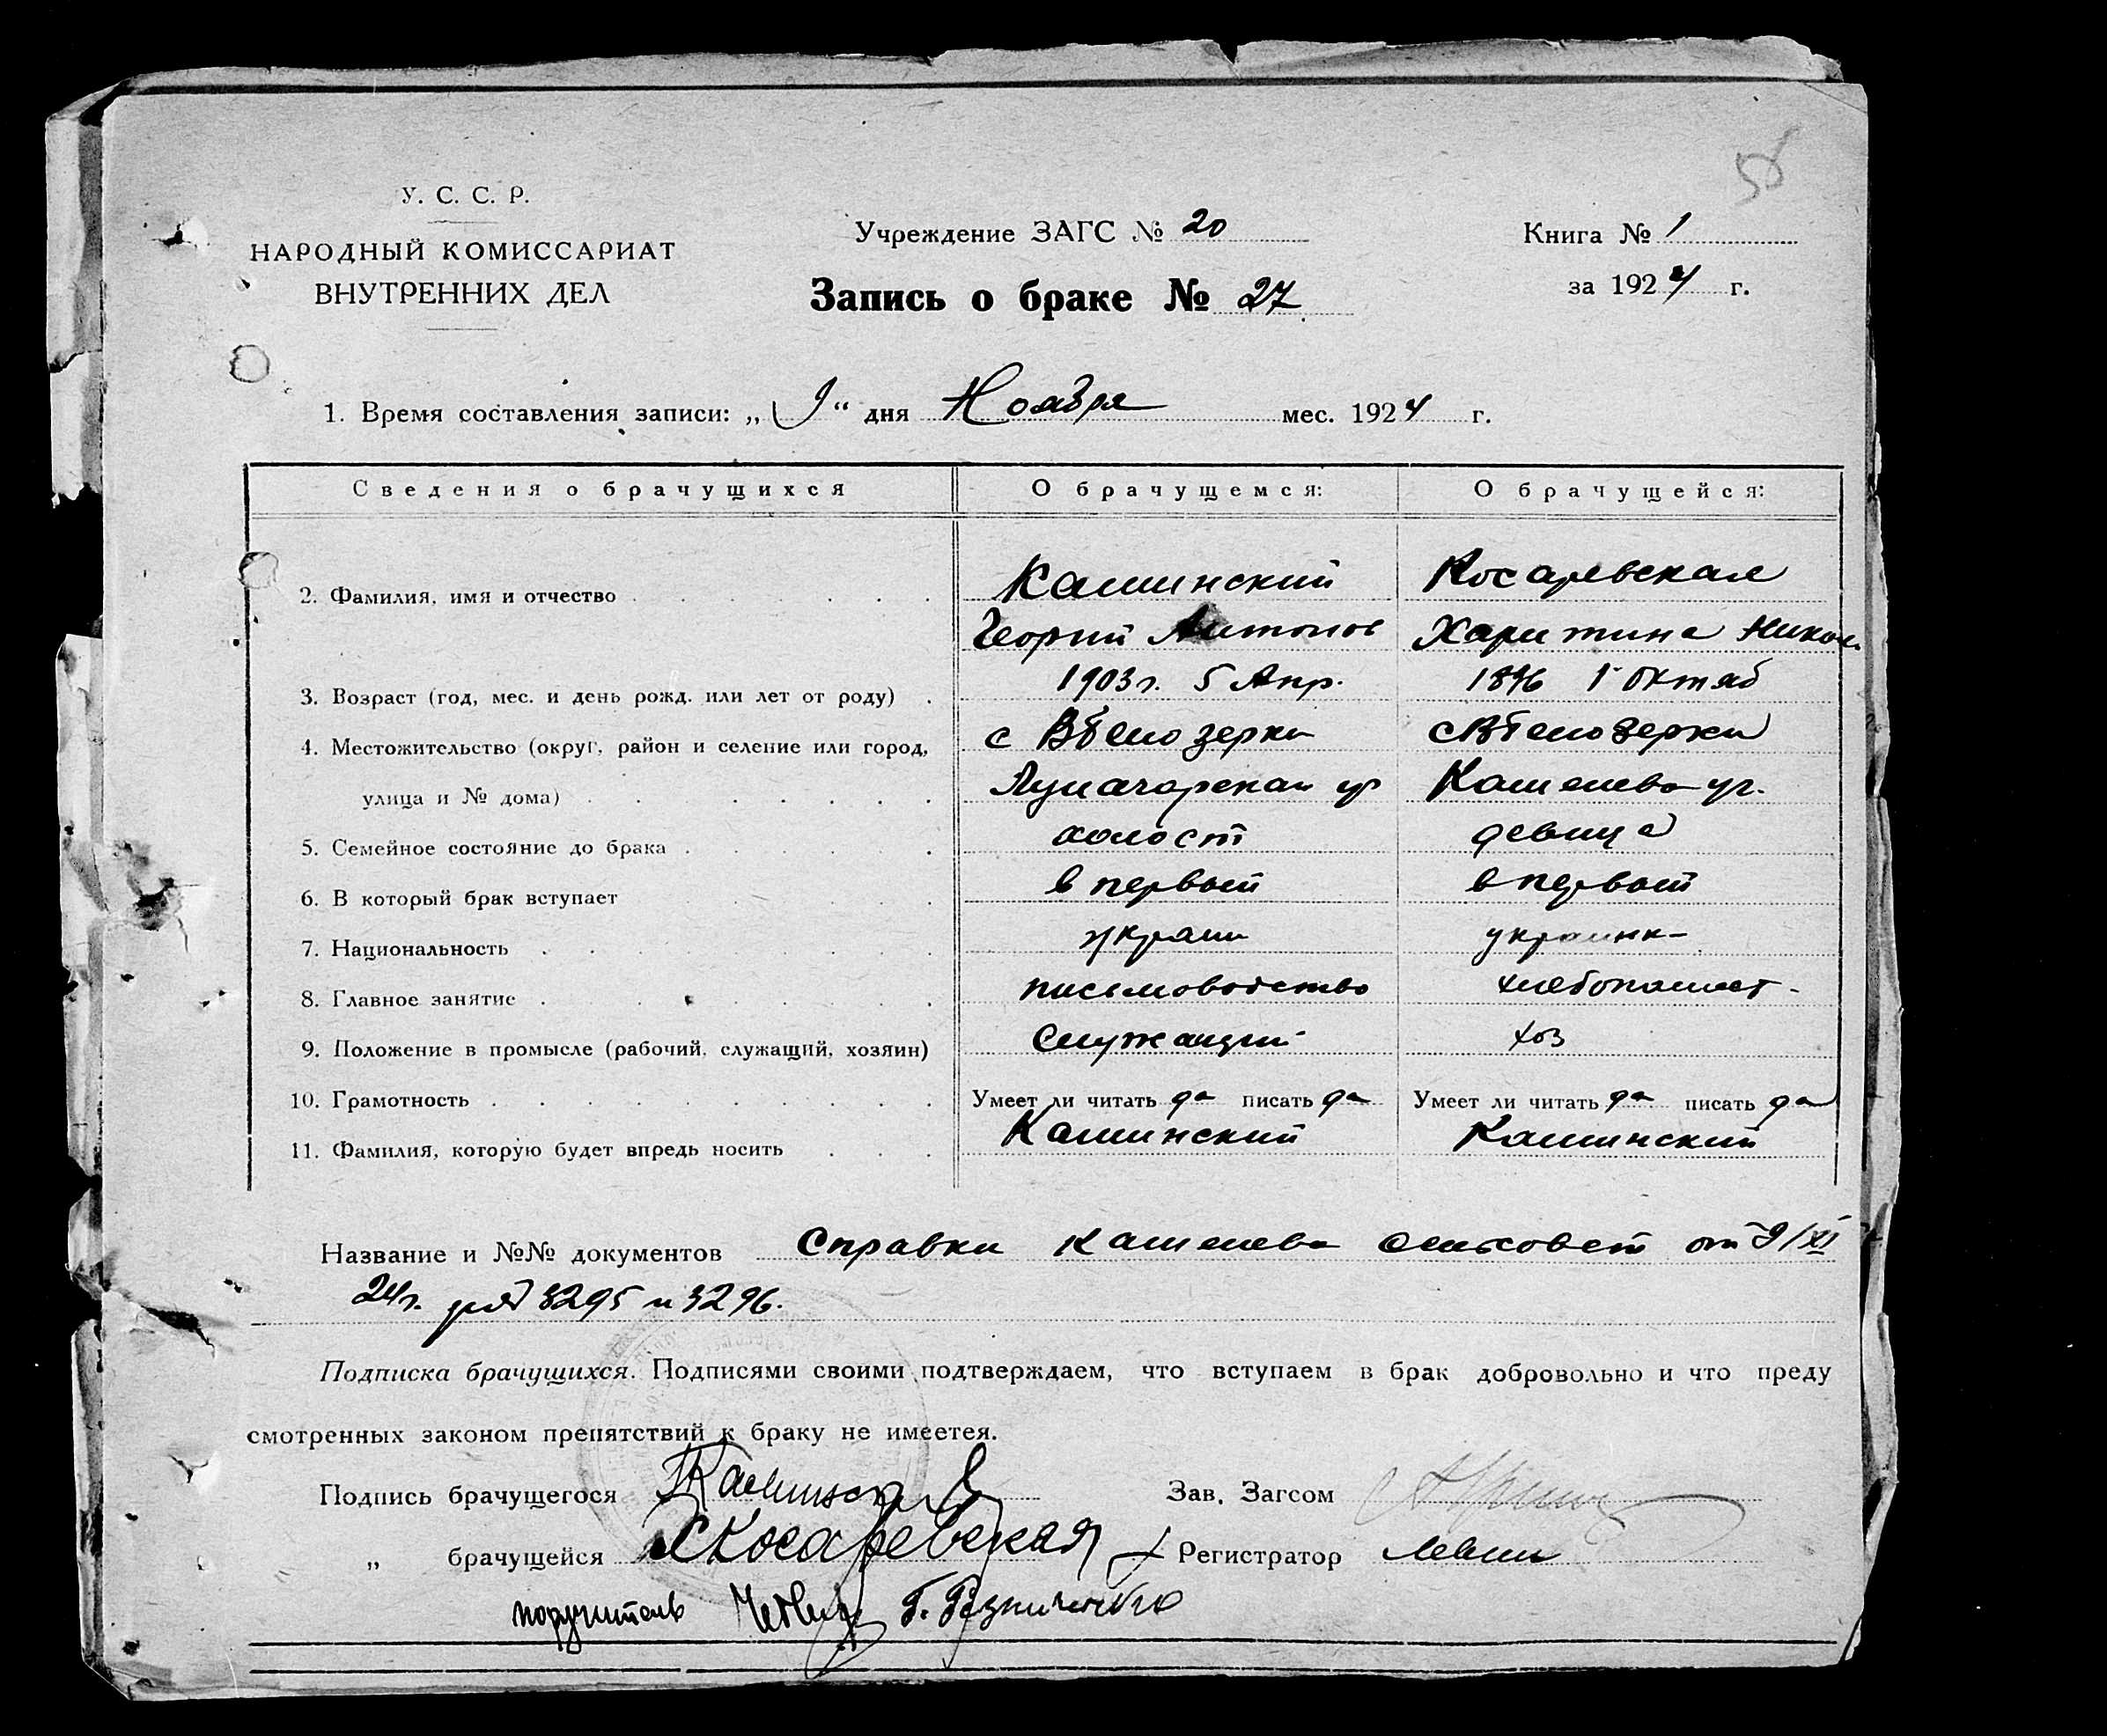 58
У. С. С. Р.
НАРОДНЫЙ КОМИССАРИАТ
ВНУТРЕННИХ ДЕЛ
Учреждение ЗАГС № 20
Запись о браке № 27
Книга № 1
за 1924 г.
1. Время составления записи: „ 9 “ дня Ноября мес. 1924 г.
Сведения о брачущихся О брачущемся: О брачущейся:
2. Фамилия, имя и отчество Каминский Косаревская
Георгий Антонов Харитина Никол.
3. Возраст (год, мес. и день рожд. или лет от роду) 1903 г. 5 Апр. 1896 1 Октяб
4. Местожительство (округ, район и селение или город, с Вбелозерки с Вбелозерки
улица и № дома) Луначарская ул
5. Семейное состояние до брака холост девица
6. В который брак вступает в первый в первый
7. Национальность украин украинк-
8. Главное занятие письмоводство хлебопашест-
9. Положение в промысле (рабочий, служащий, хозяин) Служащий хоз
10. Грамотность Умеет ли читать да писать да Умеет ли читать да писать да
11. Фамилия, которую будет впредь носить Каминский Каминский
Название и №№ документов Справки сельсовет от 9/XI
24 г. 3295 и 3296.
Подписка брачущихся. Подписями своими подтверждаем, что вступаем в брак добровольно и что преду
смотренных законом препятствий к браку не имеетея.
Подпись брачущегося Каминский Зав. Загсом
„ брачущейся Х Косаревская Регистратор Левин
поручитель Г. Резниченко